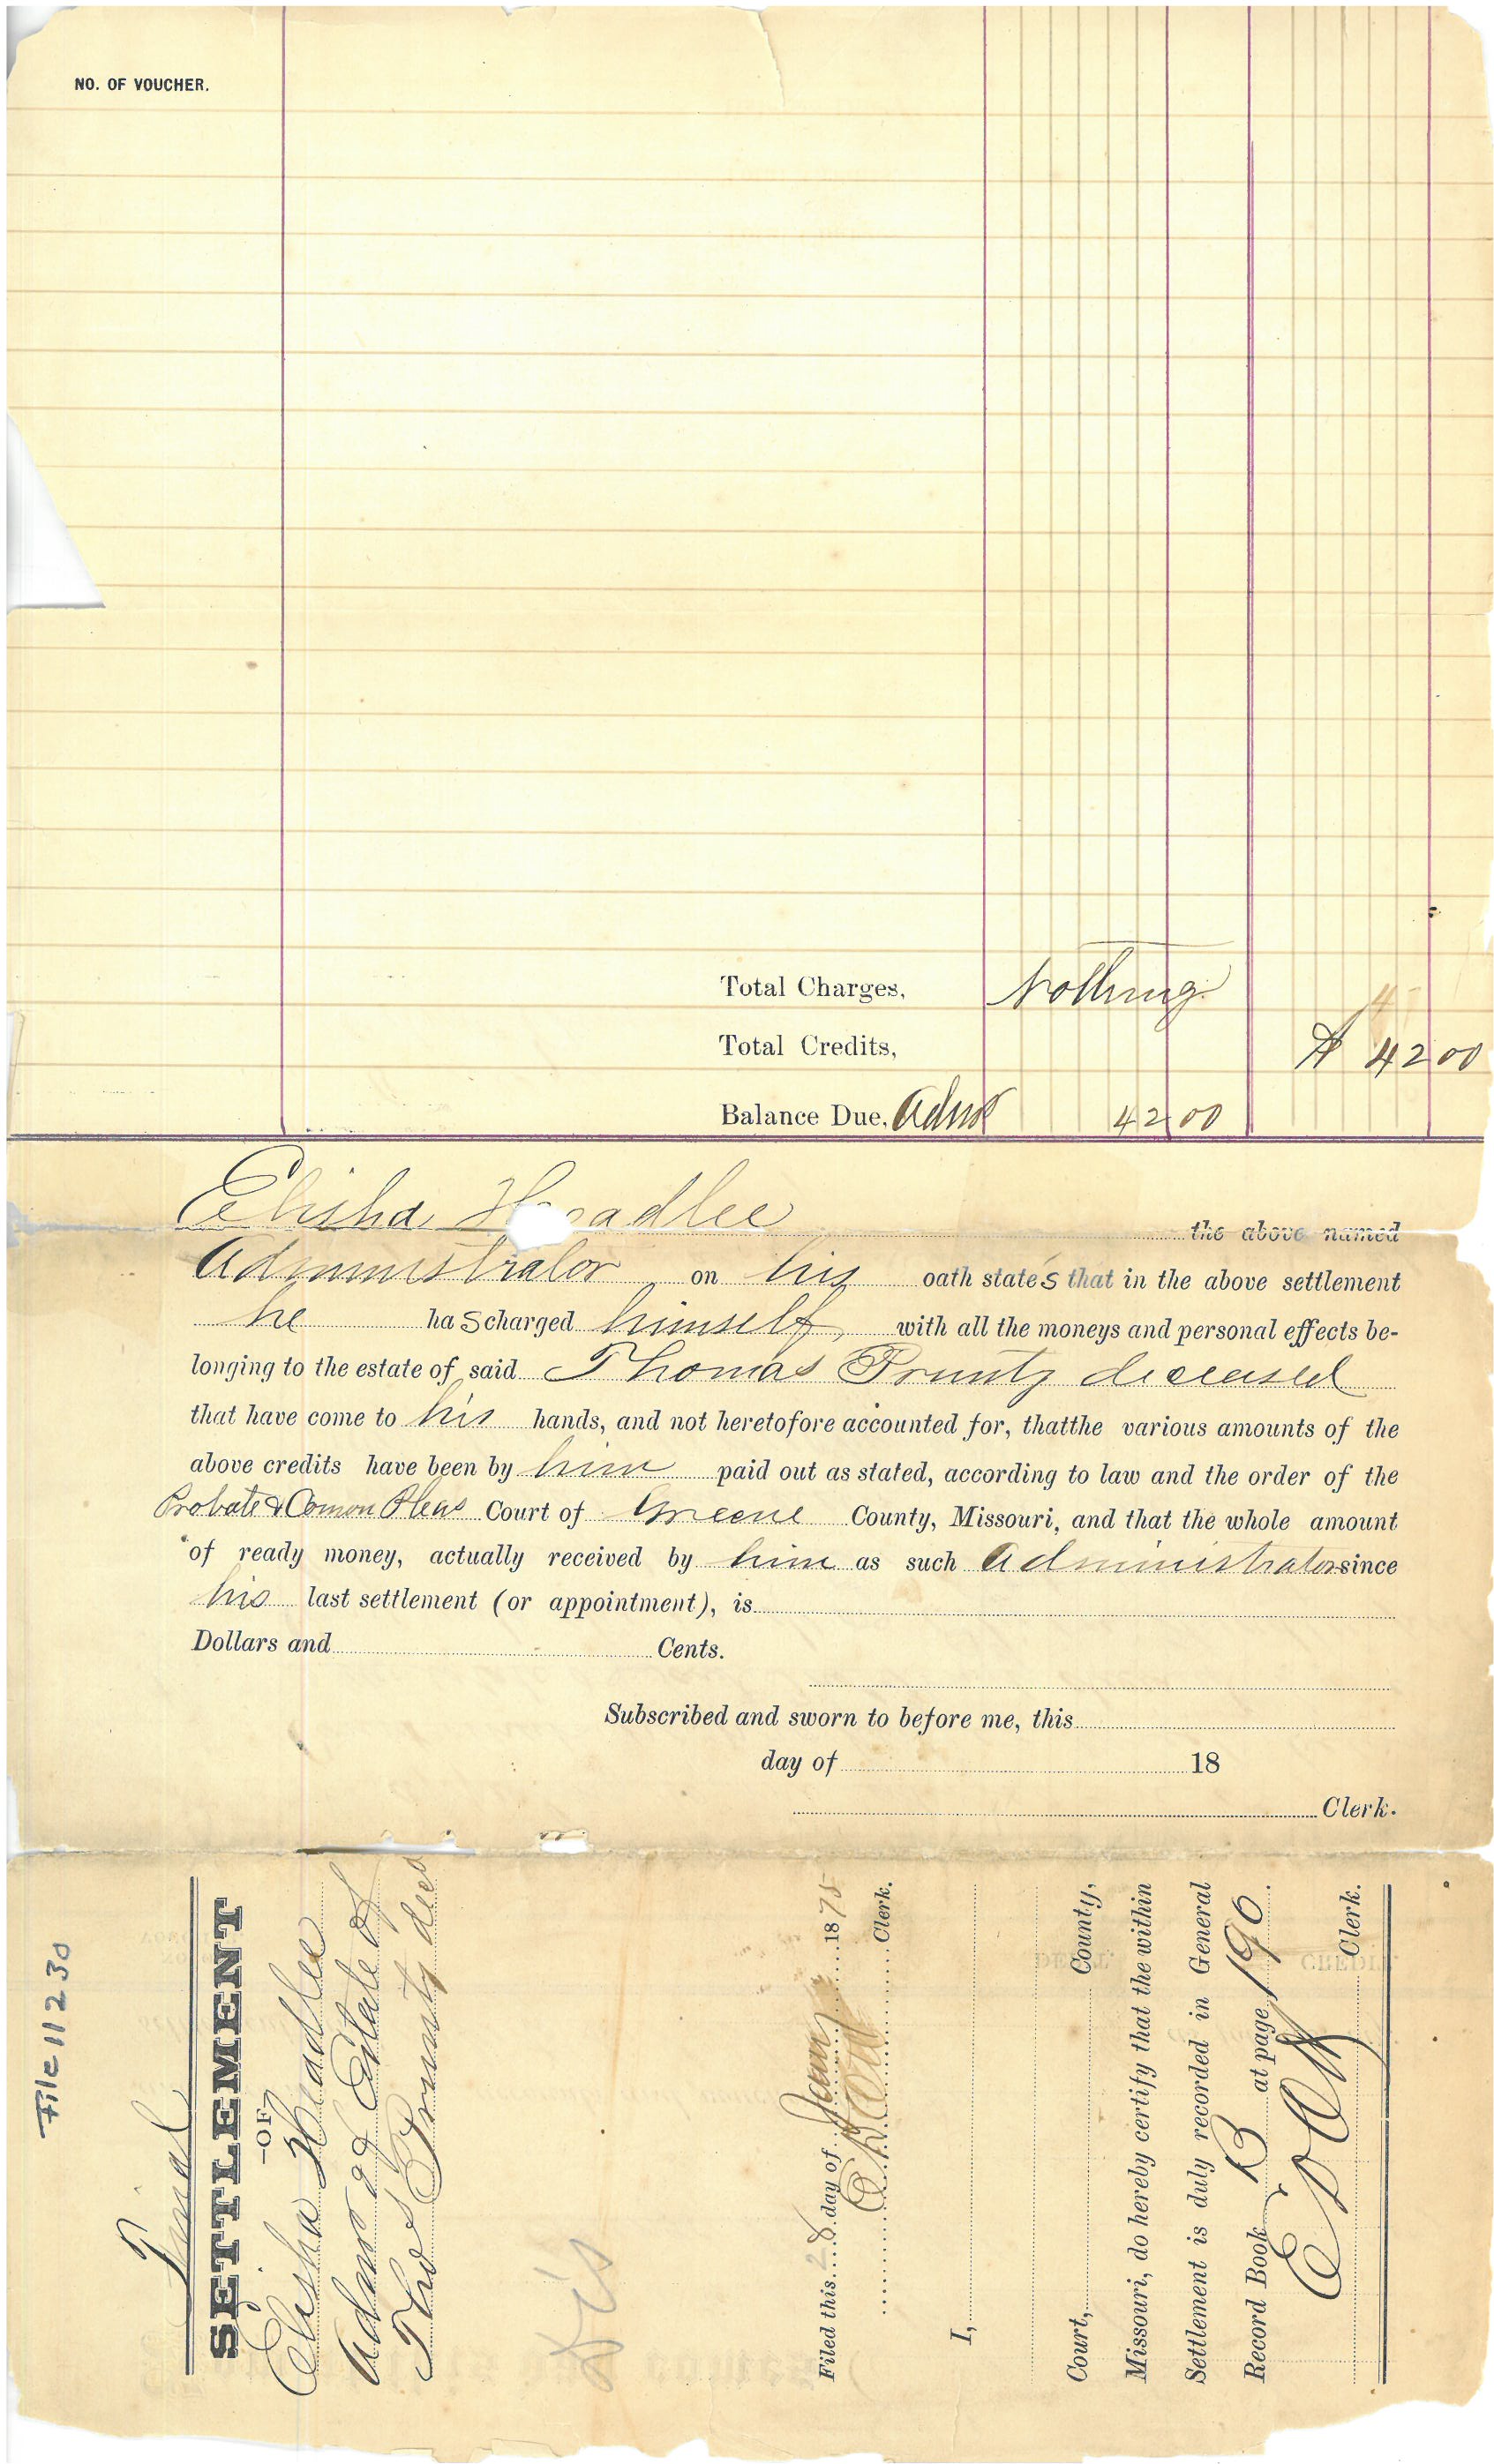 NO. OF VOUCHER.
Total Charges, Nothing
Total Credits, $ 42 00
Balance Due, Admr 42 00
Elisha Headlee the above named
Administrator on his oath states that in the above settlement
he has charged himself, with all the moneys and personal effects be-
longing to the estate of said Thomas Prunty deceased
that have come to his hands, and not heretofore accounted for, thatthe various amounts of the
above credits have been by him paid out as stated, according to law and the order of the
Probate & Comon Pleas Court of Greene County, Missouri, and that the whole amount
of ready money, actually received by him as such Administrator since
his last settlement (or appointment), is
Dollars and Cents.
Subscribed and sworn to before me, this
day of 18
Clerk.
File 11230
Final
SETTLEMENT
—OF—
Elisha Headlee
Admr of Estate of
Thos Prunty decd
Filed this 28 day of Jany 1875
Clerk.
I,
Court, County,
Missouri, do hereby certify that the within
Settlement is duly recorded in General
Record Book B at page 190.
Clerk.